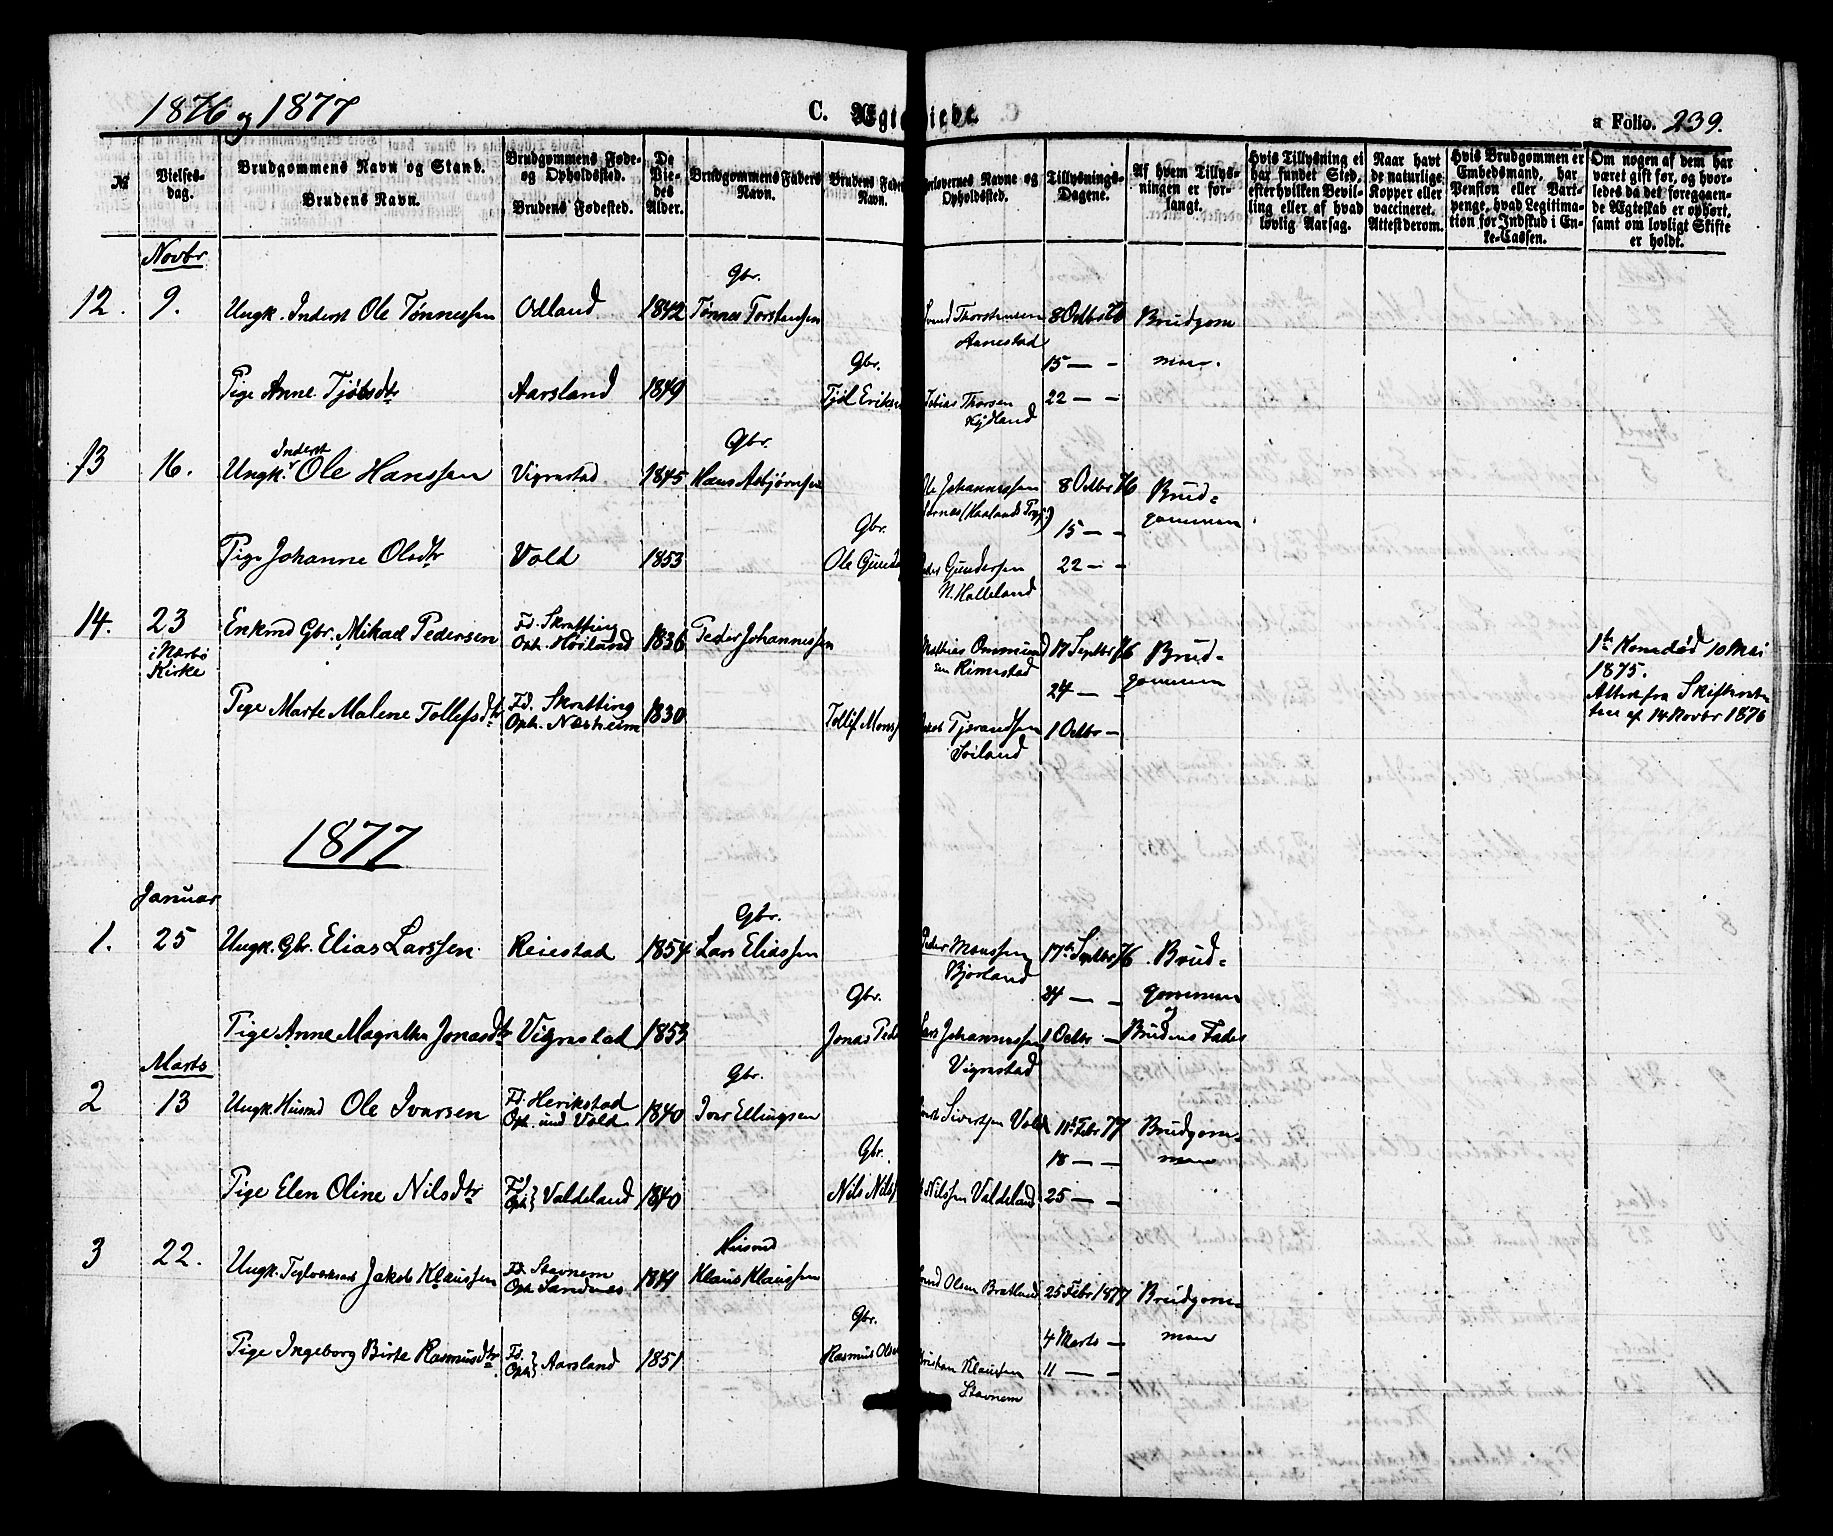 1876 og 1877
C. Ægteviede.
a Folio. 239.
№
Vielses-
dag.
Brudgommens Navn og Stand.
Brudens Navn.
Brudgommens Føde-
og Opholdssted.
Brudens Fødested.
De
Vie-
des
Alder.
Brudgommens Faders
Navn.
Brudens Fad
Navn.
orlovernes Navne og
Opholdssted.
Tillysnings-
Dagene.
Af hvem Tillys-
ningen er for-
langt.
Hvis Tillysning ei
har fundet Sted,
efter hvilken Bevil-
ling eller af hvad
lovlig Aarsag.
Naar havt
de naturlige
Kopper eller
vaccineret.
Attest derom.
Hvis Brudgommen er
Embedsmand, har
Pension eller Vart-
penge, hvad Legitima-
tion for Indskud i En-
ke-Cassen.
Om nogen af dem har
været gift før, og hvor-
ledes da det foregaaen-
de Ægteskab er ophørt,
samt om lovligt Skifte
er holdt.
Novbr
12. 9. Ungk. Inderst Ole Tønnessen Odland 1842 Gbr. Tønnes Torstensen
Svend Thorstensen Aanestad 8 Octbr 76 Brudgom
men.
15 — -
Pige Anne Tjølsdtr Aarsland 1849 Gbr. Tjøl Eriks
Tobias Thorsen Kydland 22 — -
13 16. Ungk. Inderst Ole Hanssen Vigrestad 1845 Gbr. Hans Asbjørnsen
Ole Johannessen (Haalands Prgj.) 8 Octbr 76 Brud-
gommen
15 — -
Pige Johanne Olsdtr Vold 1853 Gbr. Ole Gunds
Gundersen N. Halleland 22 — -
14. 23 i Nærbø Kirke Enkmd Gbr. Mikael Pedersen Fd. Skratting Oph. Høiland 1836 Peder Johannessen
Mathias Ommund
sen Rimestad 17 Septbr 76 Brud-
gommen
24 — -
1ste Kone død 10 Mai
1875.
Attest fra Skifteret
ten af 14 Novbr 1876
Pige Marte Malene Tollefsdtr Fd. Skratting Oph. Næsheim 1830 Tollef Mons
Tjerandsen Soiland 1 Octbr -
1877
Januar
1. 25 Ungk. Gbr. Elias Larssen Reiestad 1854 Gbr. Lars Eliassen
Peder Monssen Bjorland 17de Septbr 76 Brud-
gommen
24 — -
og
Pige Anne Magrethe Jonasdtr Vigrestad 1853 Gbr. Jonas Ped
Lars Johannessen Vigrestad 1 Octbr - Brudens Fader
Marts
2 13 Ungk. Husmd Ole Iversen Fd. Herikstad Oph. und. Vold 1840 Gbr. Iver Ellingsen
Sivertsen Vold 11te Febr 77 Brudgom-
men
18 — -
Pige Elen Oline Nilsdtr Fd. Oph. } Valdeland 1840 Gbr. Nils Nils
Nilssen Valdeland 25 — -
3 22. Ungk. Teglverksarb Jakob Klaussen Fd. Stavnem Oph. Sandnes 1849 Husmd Klaus Klaussen
Olsen Bratland 25 Febr 1877 Brudgom-
men
4 Marts -
Pige Ingeborg Birte Rasmusdtr Fd. Oph. } Aarsland 1851 Gbr. Rasmus Ols
Kristian Klaussen Stavnem 11 — -